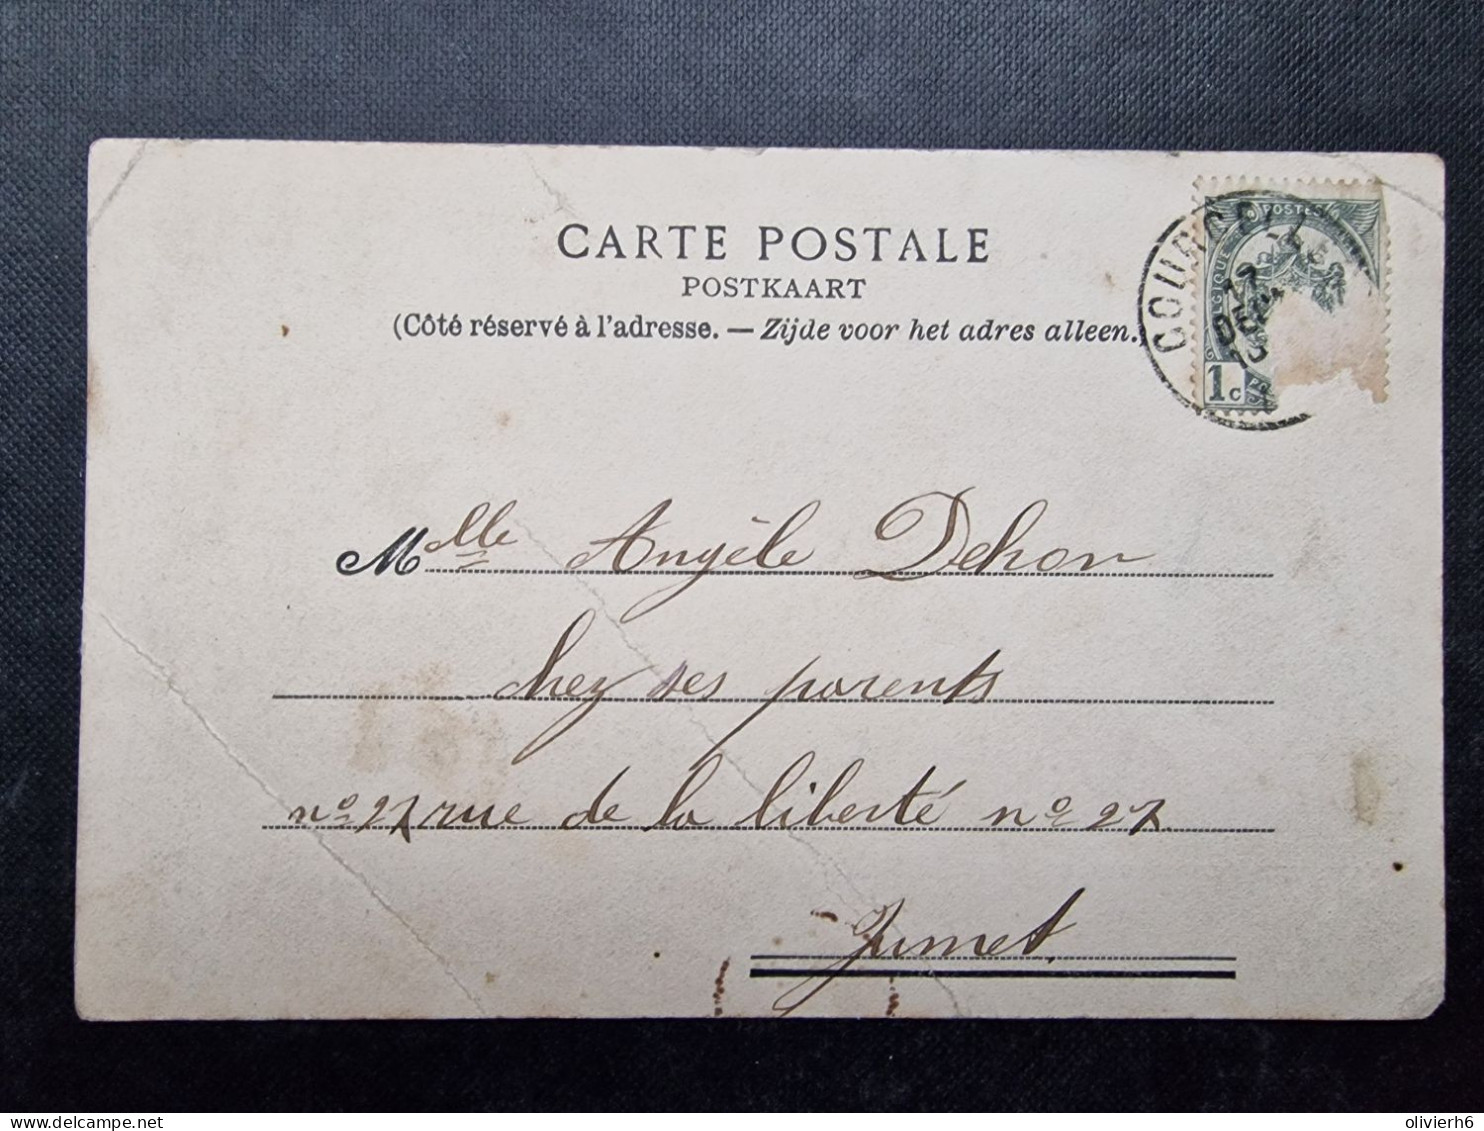 CARTE POSTALE
POSTKAART
(Côté réservé à l'adresse. — Zijde voor het adres alleen.)
POSTES
1c
Mlle Angèle Dehon
chez ses parents
nº 27 rue de la liberté nº 27
Jumet.
olivierh6